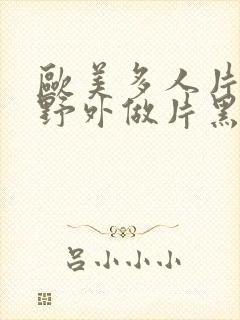 歐美多人片
野外做片黑
吕小小小